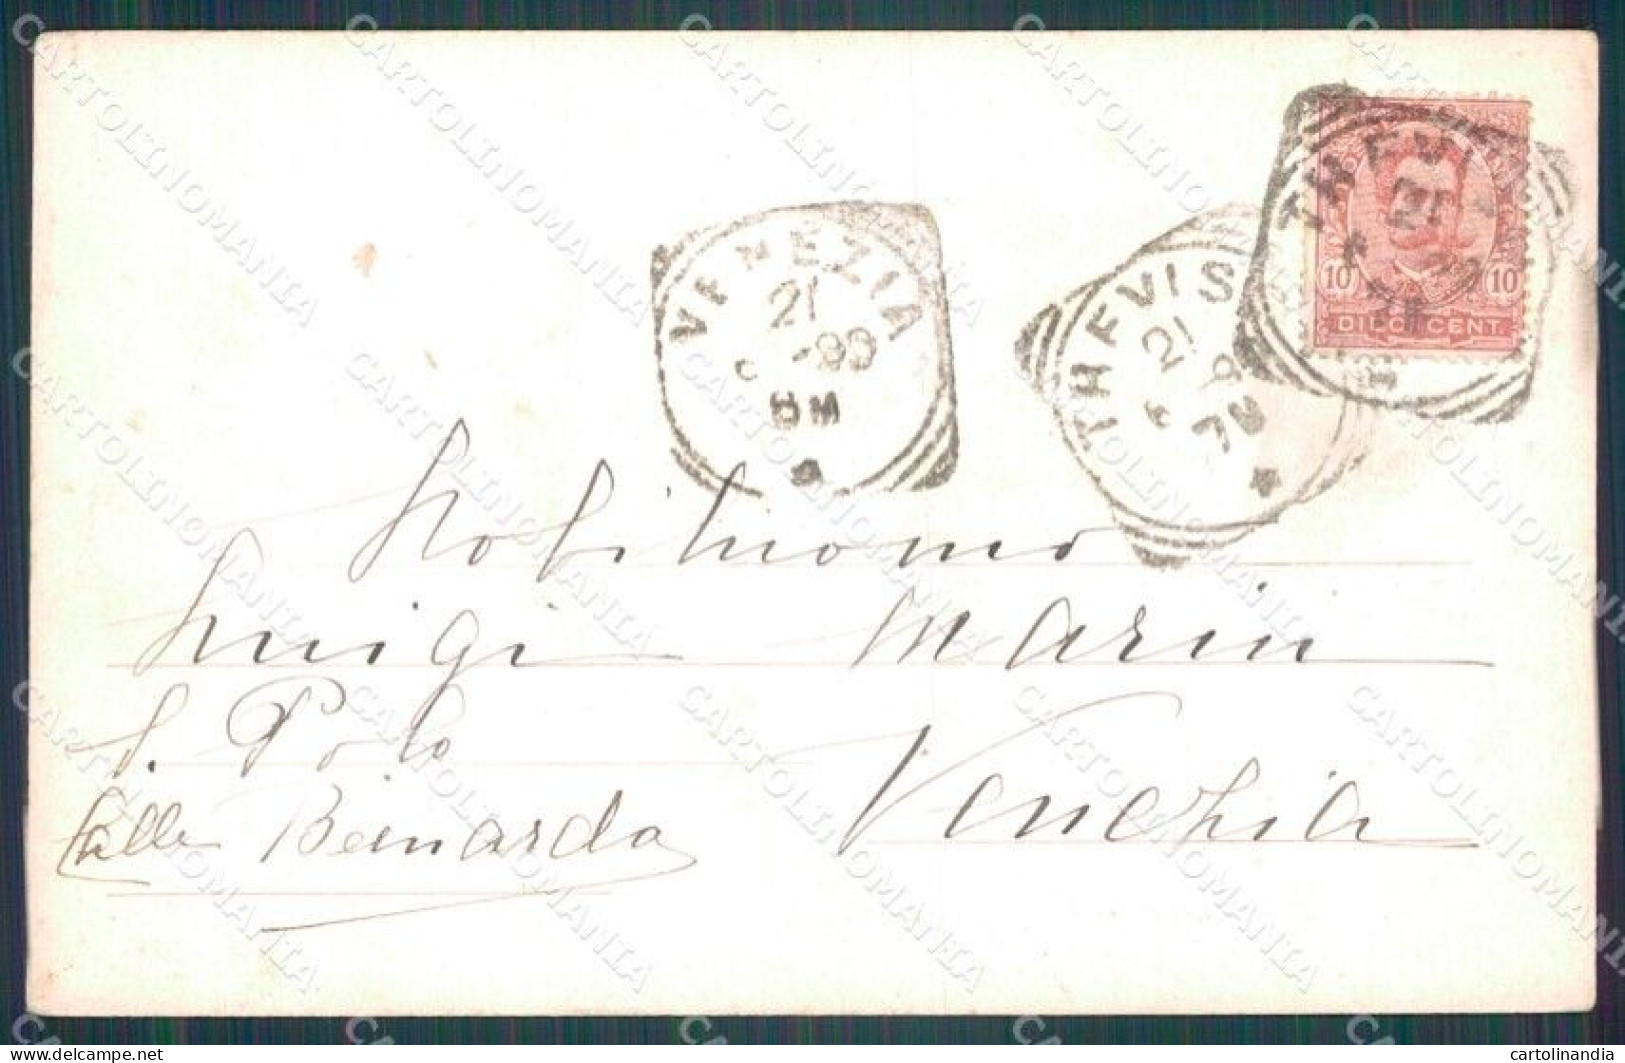 VENEZIA
21
-99
8M
TREVISO
21
7M
TREVI
21
10 10
DIECI CENT.
Nobiluomo
Luigi Marin
S. Polo
Calle Bernarda
Venezia
CARTOLINOMANIA
delcampe.net
cartolinandia